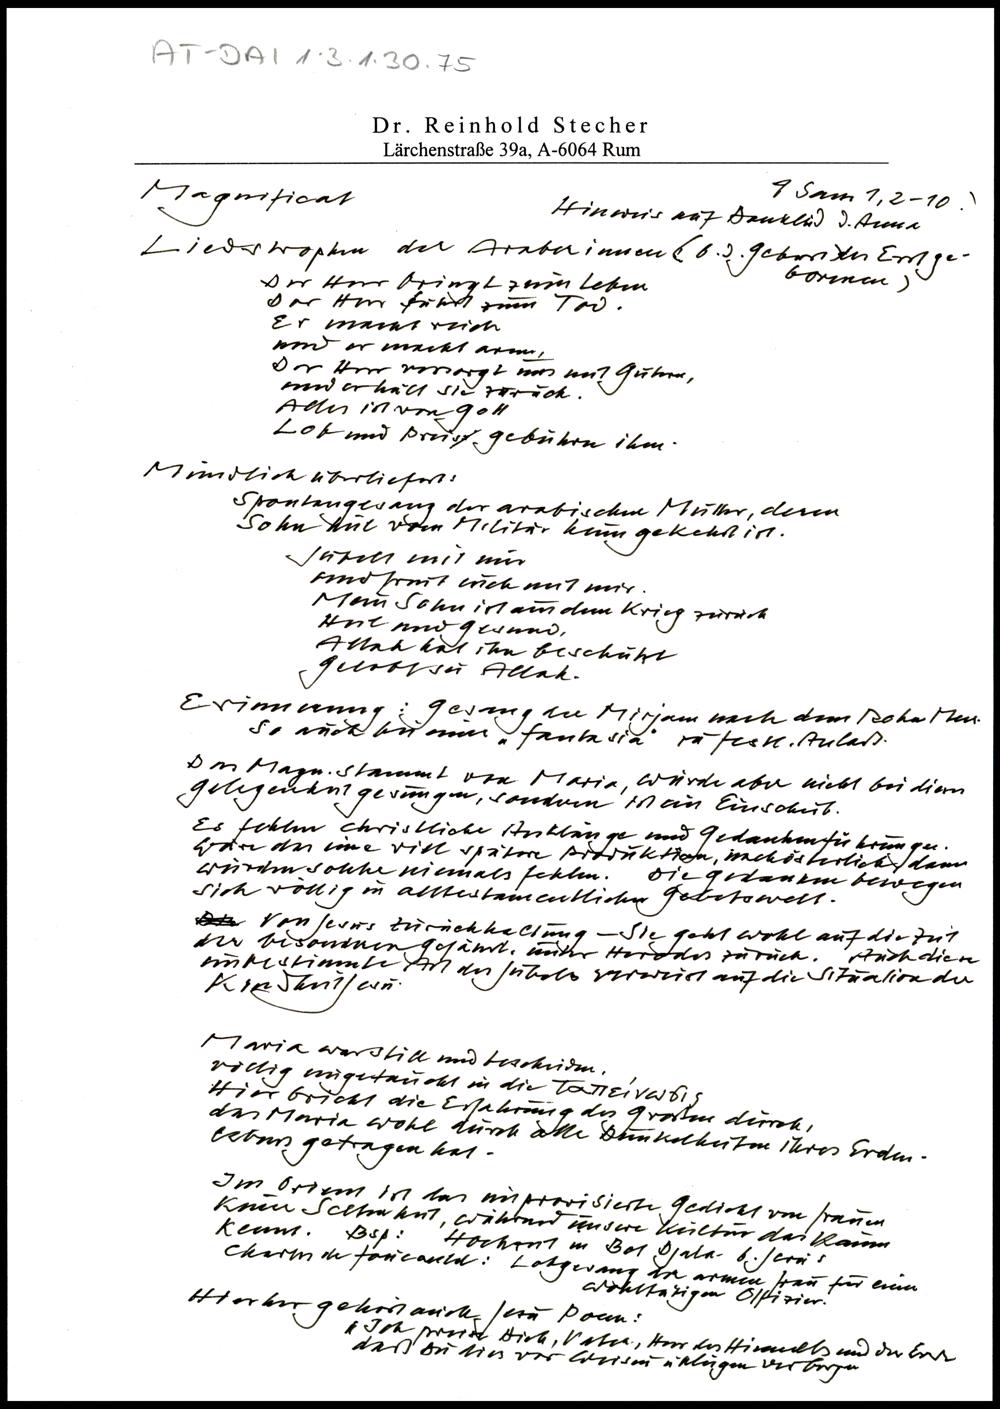 AT-DAI 1.3.1.30.75
Dr. Reinhold Stecher
Lärchenstraße 39a, A-6064 Rum
Magnificat
1 Sam 1,2-10!
Hinweis auf Danklied d. Anna
Liedstrophen der Araberinnen (b. d. Geburt des Erstge-
borenen)
Der Herr bringt zum Leben
Der Herr führt zum Tod.
Er macht reich
und er macht arm,
Der Herr versorgt uns mit Gütern,
und er hält sie zurück.
Alles ist von Gott
Lob und Preis gebühren ihm.
Mündlich überliefert:
Spontangesang der arabischen Mutter, deren
Sohn heil vom Militär heimgekehrt ist.
Jubelt mit mir
und freut euch mit mir.
Mein Sohn ist aus dem Krieg zurück
Heil und gesund,
Allah hat ihn beschützt
Gelobt sei Allah.
Erinnerung: Gesang der Mirjam nach dem Rohn Meer.
So auch bei einer "fantasia" zu festl. Anlaß.
Das Magn. stammt von Maria, würde aber nicht bei dieser
Gelegenheit gesungen, sondern ist ein Einschub.
Es fehlen christliche Anklänge und Gedankenführungen.
Wäre das eine viel spätere Produktion, nachösterlich, dann
würden solche niemals fehlen. Die Gedanken bewegen
sich völlig in alttestamentlicher Gebetswelt.
Von Jesus Zurückhaltung – Sie geht wohl auf die Zeit
der besonderen Gefährd. unter Herodes zurück. Auch diese
unbestimmte Art des Jubels verweist auf die Situation der
Kindheit Jesu.
Maria war still und bescheiden,
völlig eingetaucht in die Ταπείνωσις
Hier bricht die Erfahrung des Großen durch,
das Maria wohl durch alle Dunkelheiten ihres Erden-
lebens getragen hat.
Im Orient ist das improvisierte Gedicht von Frauen
keine Seltenheit, während unsere Kultur das kaum
kennt. Bsp: Hochzeit in Bet Djala b. Jerus
Charles de Foucauld: Lobgesang der armen Frau für einen
wohltätigen Offizier.
Hierher gehört auch Jesu Poem:
"Ich preise Dich, Vater, Herr des Himmels und der Erde
daß Du dies vor Weisen u klugen verborgen